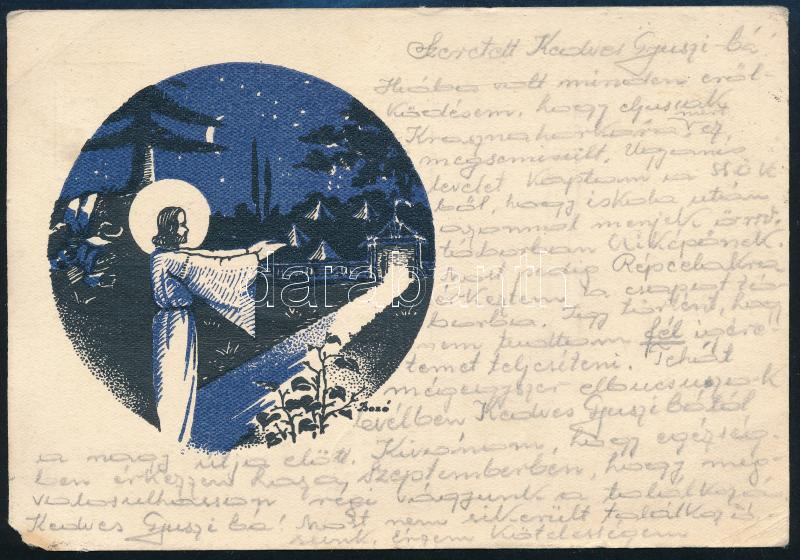 Szeretett Kedves Gyuszi bá!
Hiába volt minden eről-
ködésem, hogy eljussak
Krasznahorkára mert ez
megsemisült. Ugyanis
levelet kaptam a
ből, hogy iskola után
azonnal menjek őrsv.
táborban kiképzőnek.
Most pedig Répcelakra
érkeztem a csapat tá-
borba. Így történt, hogy
nem tudtam fél igére-
temet teljesíteni. Tehát
mégegyszer elbucsuzok
levélben Kedves Gyuszi bától
a nagy utja előtt. Kivánom, hogy egészség-
ben érkezzen haza, szeptemberben, hogy meg-
valosulhasson régi vágyunk a találkozá
Kedves Gyuszi bá! Most nem sikerült találkoz-
nunk. Érzem Kötelességem
Bozó
darabanth